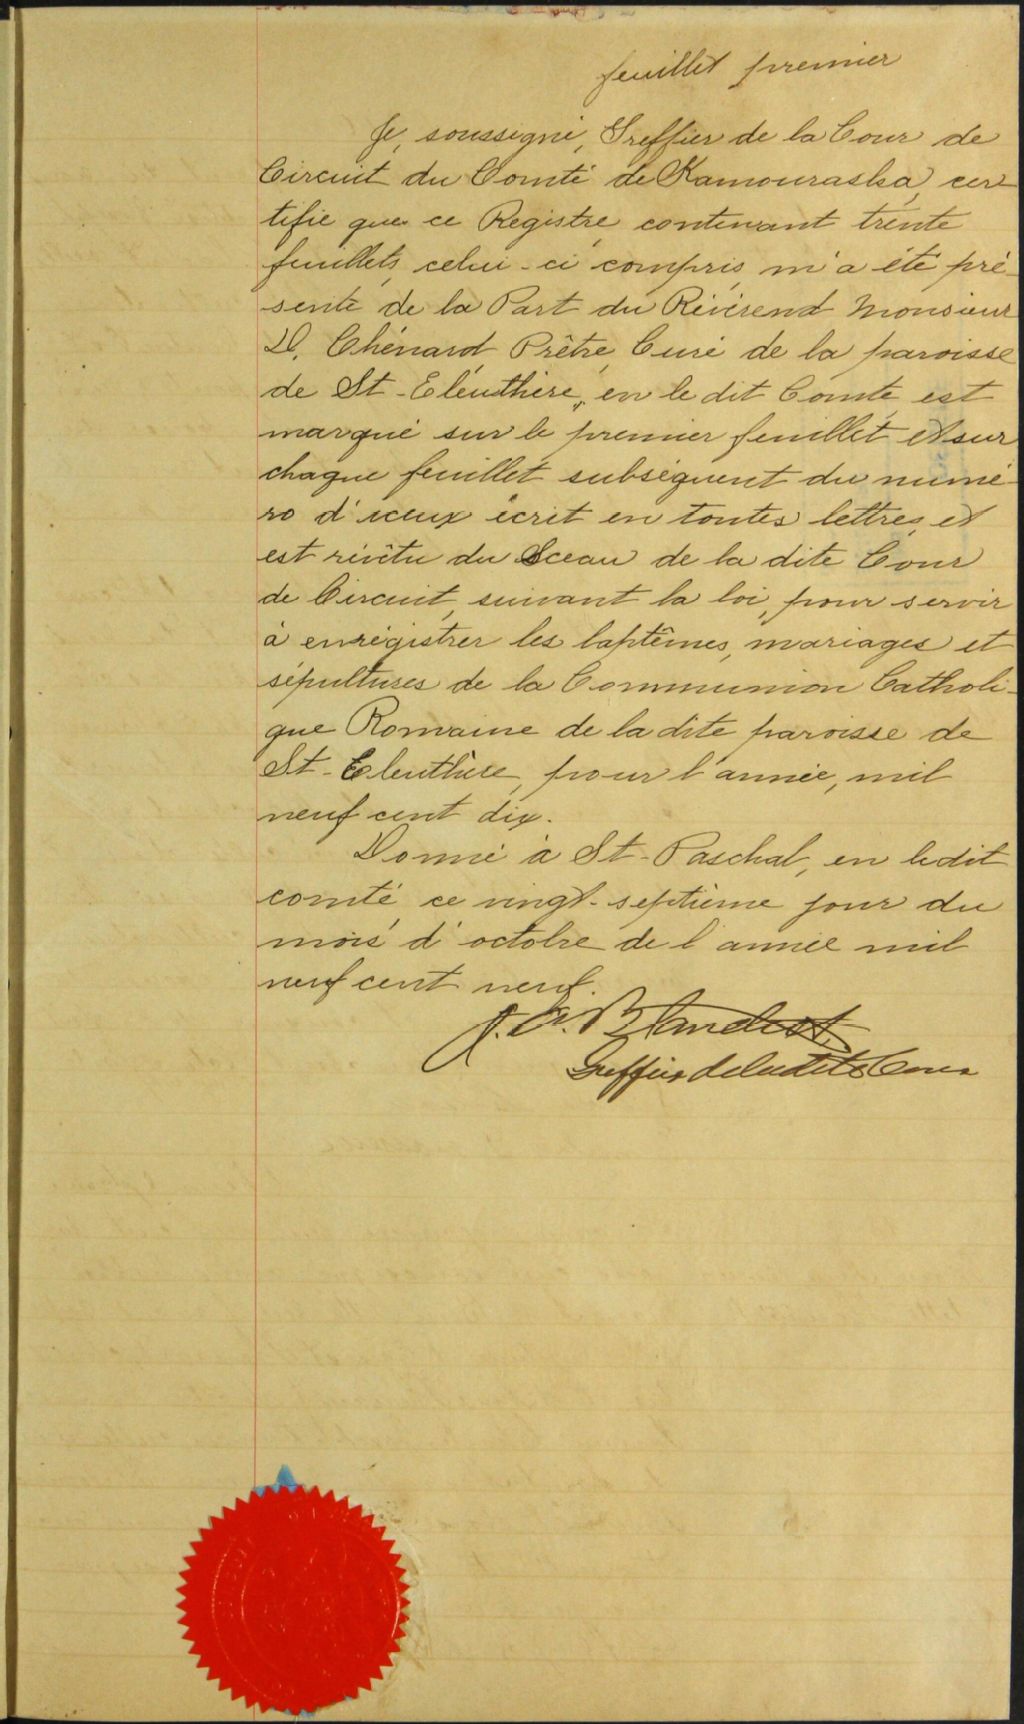 feuillet premier
Je, soussigné, Greffier de la Cour de
Circuit du Comté de Kamouraska, cer-
tifie que ce Registre, contenant trente
feuillets, celui-ci compris, m'a été pré-
senté de la Part du Révérend Monsieur
D. Chénard Prêtre, Curé de la paroisse
de St-Eleuthère, en le dit Comté, est
marqué sur le premier feuillet et sur
chaque feuillet subséquent du numé-
ro d'iceux écrit en toutes lettres, et
est rêvêtu du Sceau de la dite Cour
de Circuit, suivant la loi, pour servir
à enrégistrer les baptêmes, mariages et
sépultures de la Communion Catholi-
que Romaine de la dite paroisse de
St-Eleuthère, pour l'année, mil
neuf cent dix.
Donné à St-Paschal, en ledit
comté, ce vingt-septième jour du
mois d'octobre de l'année mil
neuf cent neuf.
Greffier de ladite Cour